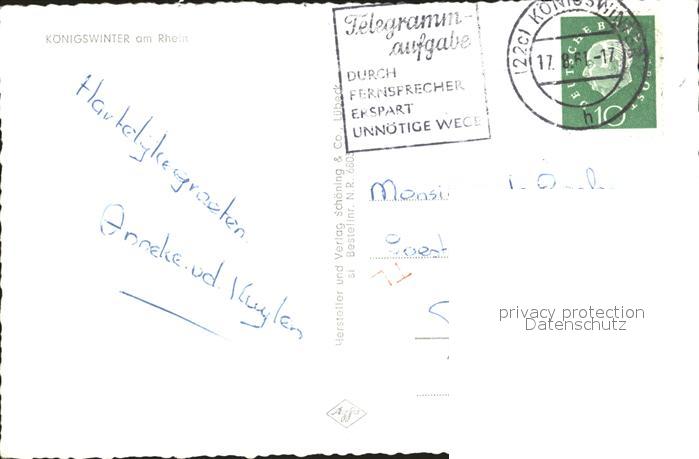 KÖNIGSWINTER am Rhein
Telegramm-
aufgabe
DURCH
FERNSPRECHER
ERSPART
UNNÖTIGE WEGE
(22c) KÖNIGSWINTER
17.8.61.-17
h
DEUTSCHE BUNDESPOST
10
Hartelijke groeten.
Anneke v.d. Kuylen
Hersteller und Verlag Schöning & Co., Lübeck
Bestellnr. N.R.
Monsi
privacy protection
Datenschutz
Agfa